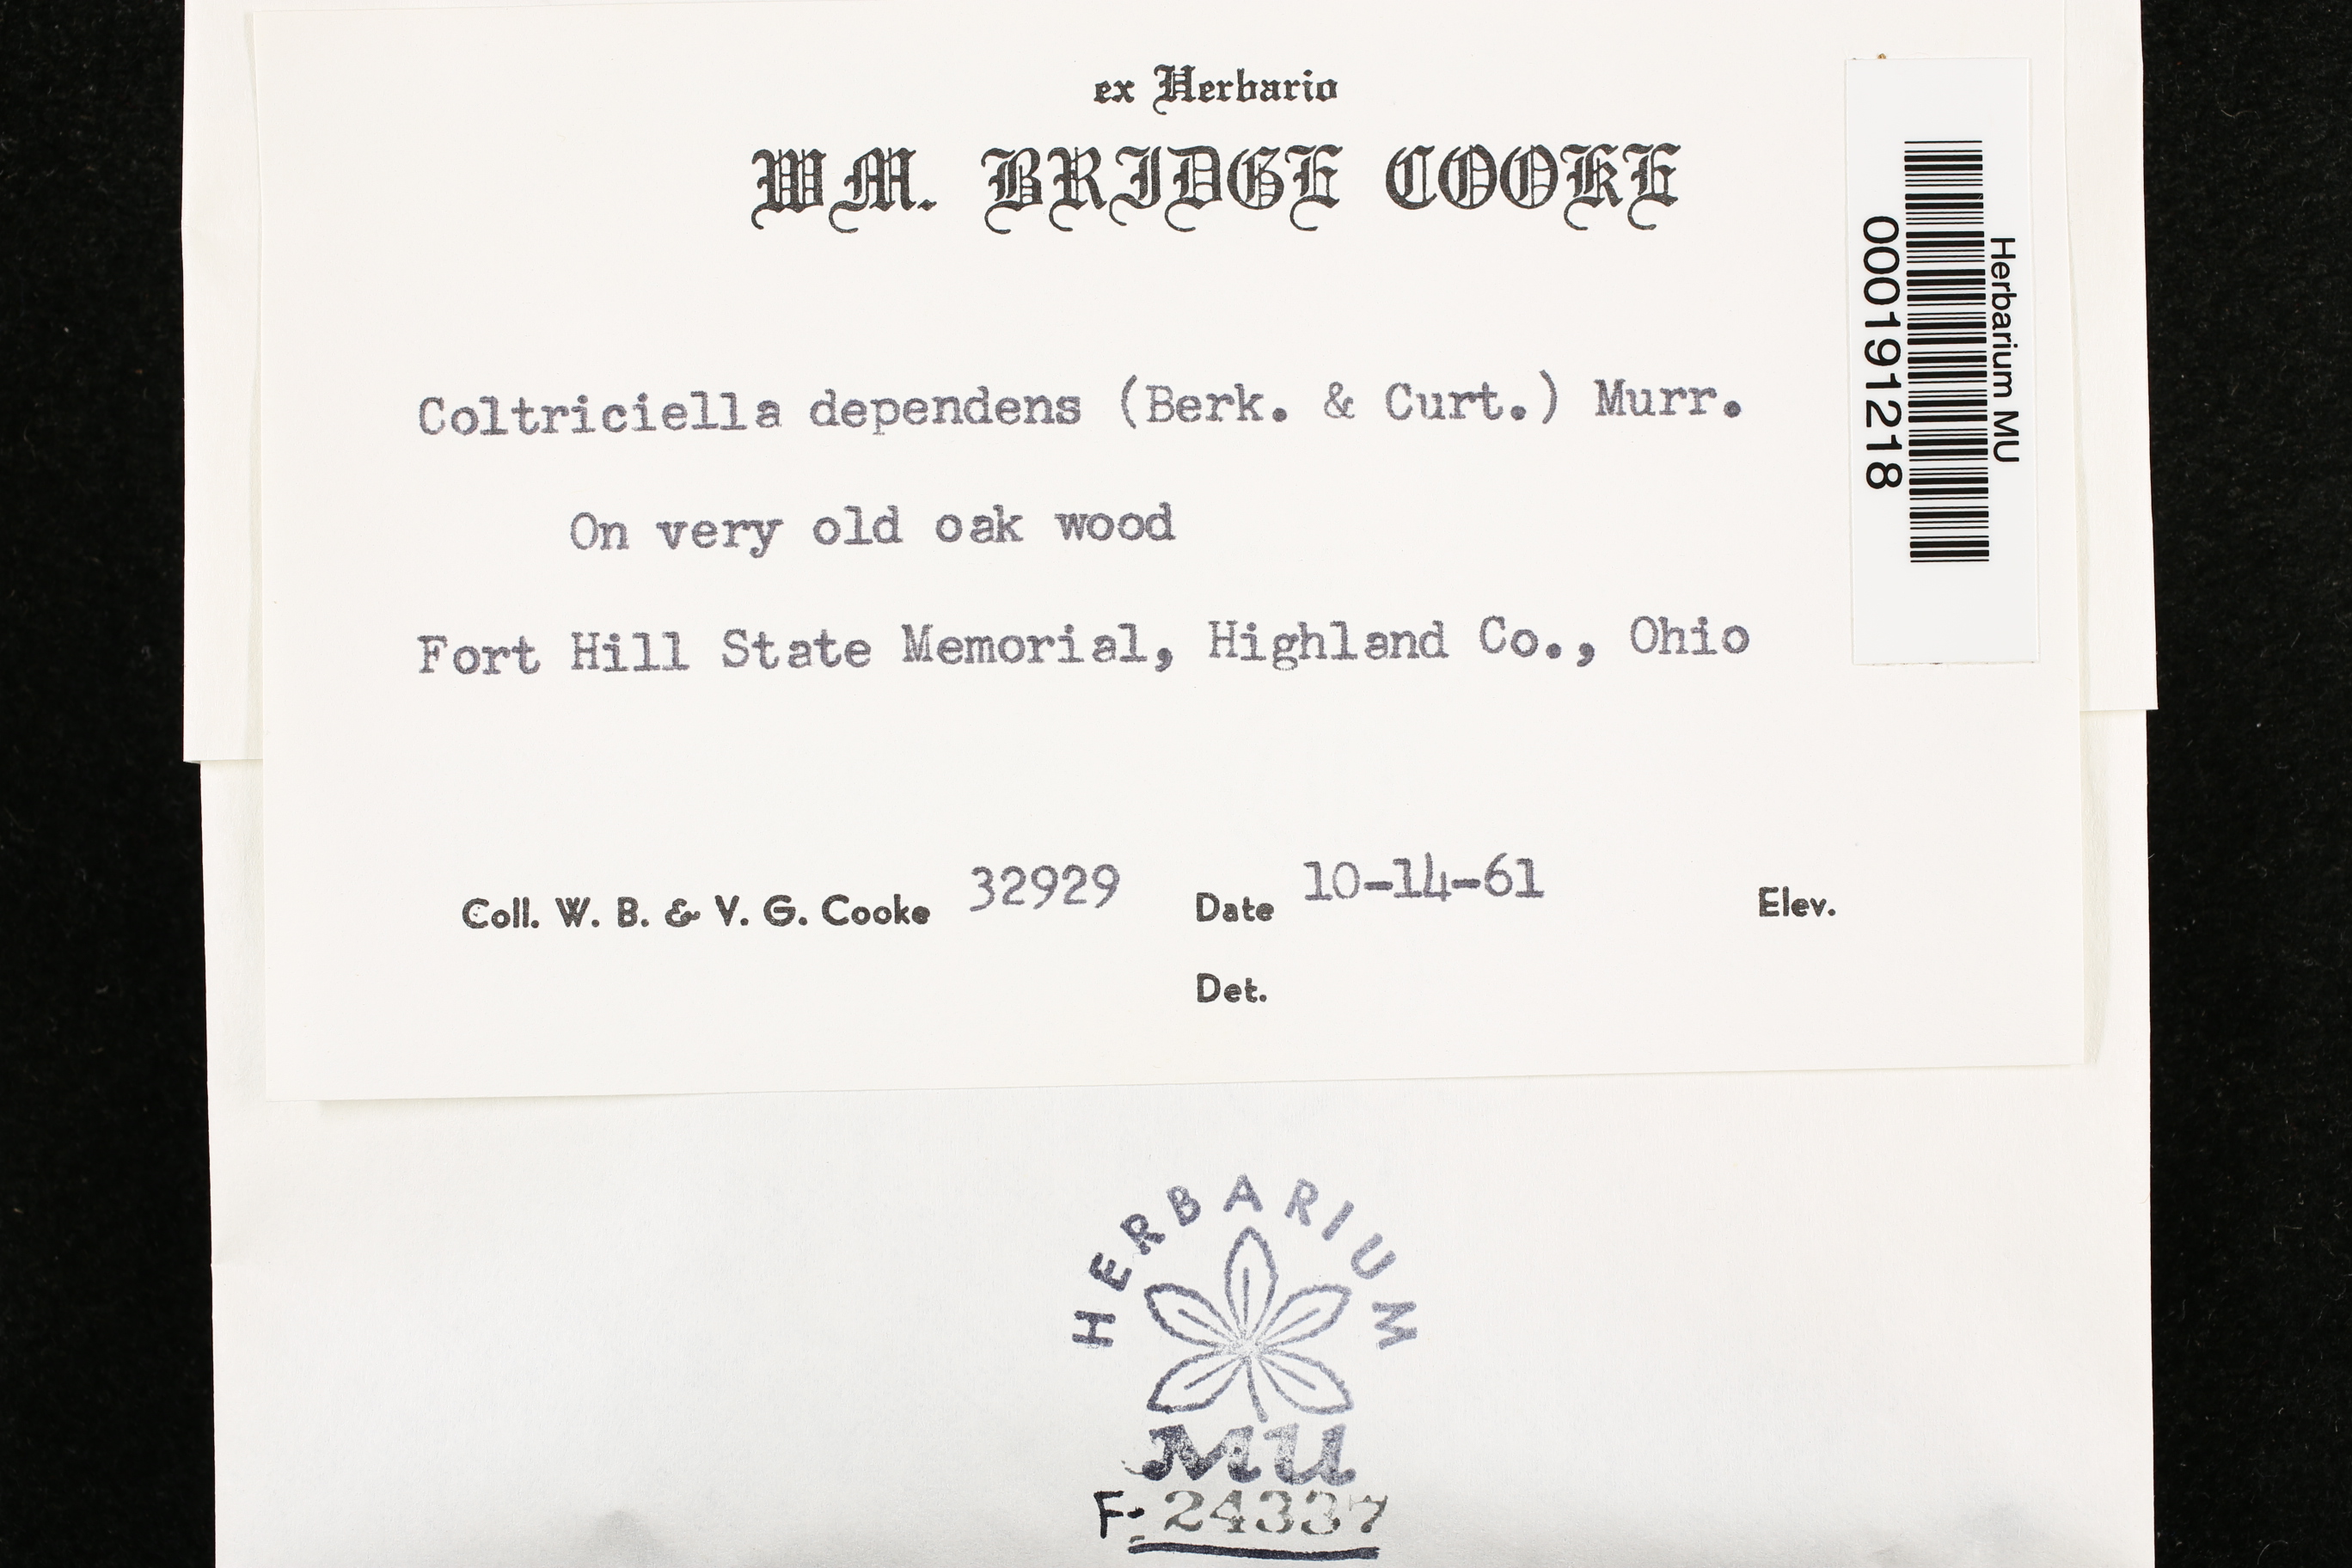 ex Herbario
WM. BRIDGE COOKE
Coltriciella dependens (Berk. & Curt.) Murr.
On very old oak wood
Fort Hill State Memorial, Highland Co., Ohio
Coll. W. B. & V. G. Cooke 32929 Date 10-14-61 Elev.
Det.
Herbarium MU
000191218
HERBARIUM
MU
F-24337